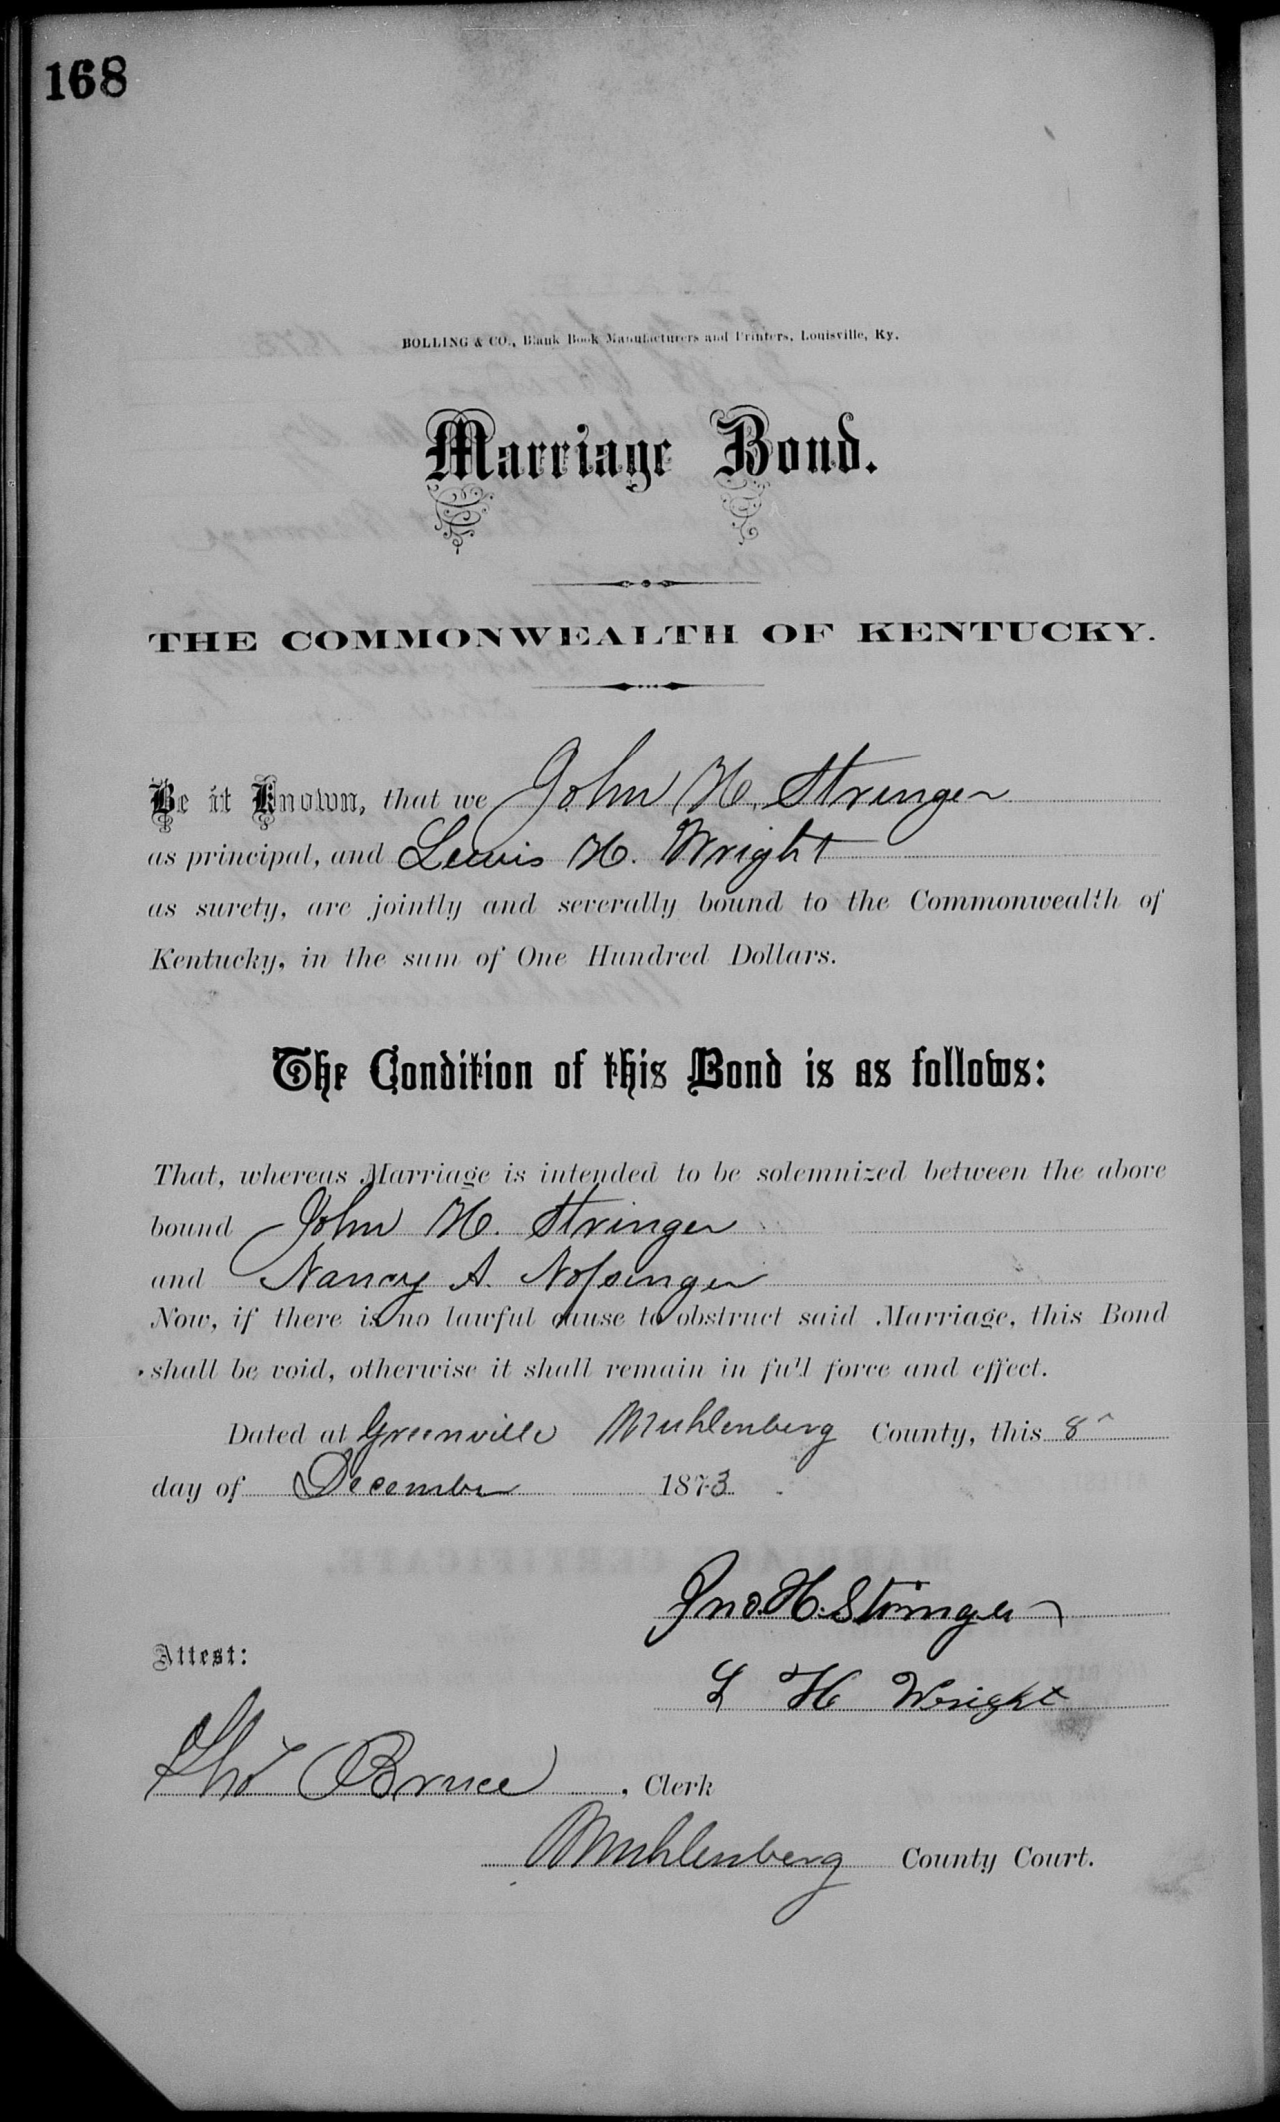 168
BOLLING & CO., Blank Book Manufacturers and Printers, Louisville, Ky.
Marriage Bond.
THE COMMONWEALTH OF KENTUCKY.
Be it Known, that we John H. Stringer
as principal, and Lewis H. Wright
as surety, are jointly and severally bound to the Commonwealth of
Kentucky, in the sum of One Hundred Dollars.
The Condition of this Bond is as follows:
That, whereas Marriage is intended to be solemnized between the above
bound John H. Stringer
and Nancy A. Nofsinger
Now, if there is no lawful cause to obstruct said Marriage, this Bond
shall be void, otherwise it shall remain in full force and effect.
Dated at Greenville Muhlenberg County, this 8"
day of December 1873.
Jno. H. Stringer
Attest:
L H Wright
Tho Bruce, Clerk
Muhlenberg County Court.